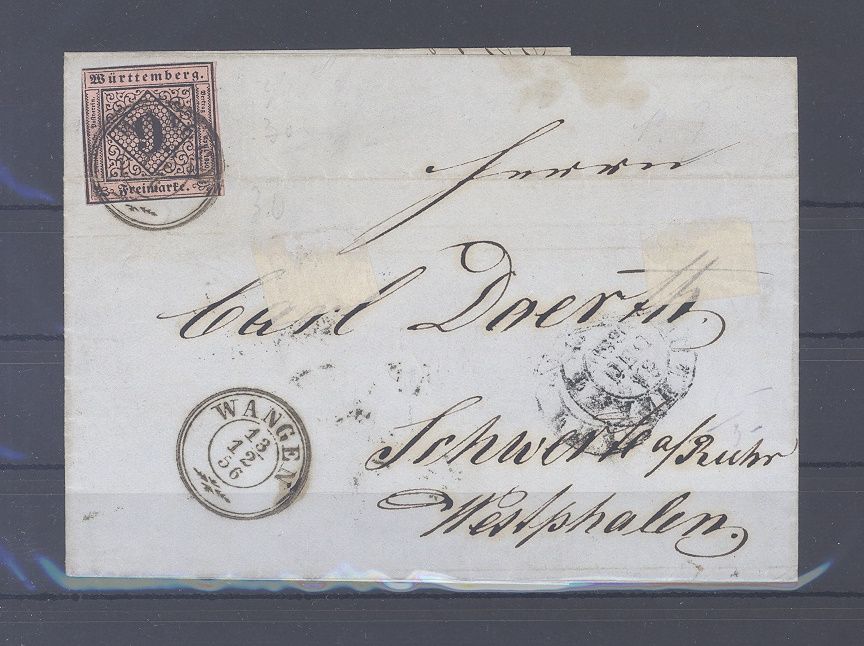 Württemberg.
9
Freimarke.
Herrn
Carl Daerth.
WANGEN
13
12
56
Schwerte a/Ruhr
Westphalen.